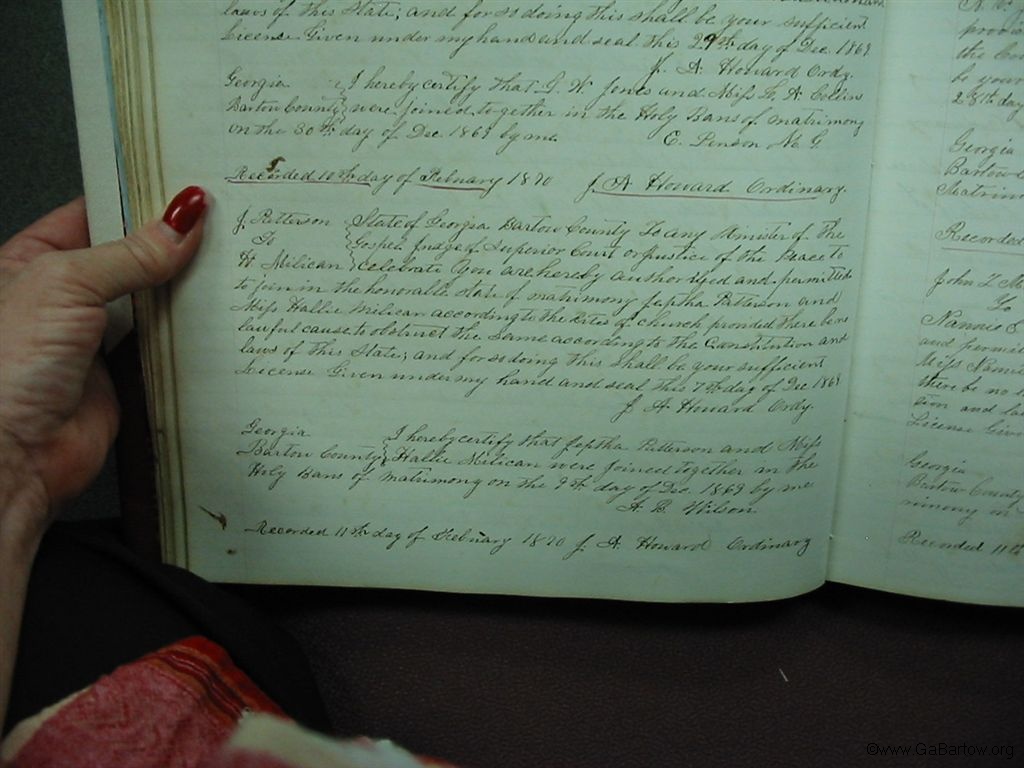 laws of this State; and for so doing this shall be your sufficient
License Given under my hand and seal this 29th day of Dec. 1869
J. A. Howard Ordy.
Georgia } I hereby certify that S. W. Jones and Miss F. A. Collin
Bartow County } were joined together in the Holy Bans of matrimony
on the 30th day of Dec 1869 by me.
C. Penson N. G.
Recorded 10th day of Febuary 1870 J. A Howard Ordinary.
J. Patterson } State of Georgia Bartow County To any Minister of the
To } Gospel, Judge of Superior Court or justice of the peace to
H Milican } celebrate You are hereby authorized and permitted
to join in the honorable state of matrimony Jeptha Patterson and
Miss Hallie Milican according to the Rites of church provided there be no
lawful cause to obstruct the same according to the Constitution and
laws of this State; and for so doing this shall be your sufficient
License Given under my hand and seal this 7th day of Dec 1869
J. A. Howard Ordy.
Georgia I hereby certify that Jeptha Patterson and Miss
Bartow County } Hallie Milican were joined together in the
Holy Bans of matrimony on the 9th day of Dec. 1869 by me
A. B. Wilson
Recorded 11th day of Febuary 1870 J. A. Howard Ordinary
provi
the Con
be your
28th day
Georgia
Bartow C
Matrim
Recorded
John L M
To
Nannie E
and permi
Miss Nanni
there be no l
tion and la
License Give
Georgia
Bartow County
mony on
Recorded 11th
©www.GaBartow.org